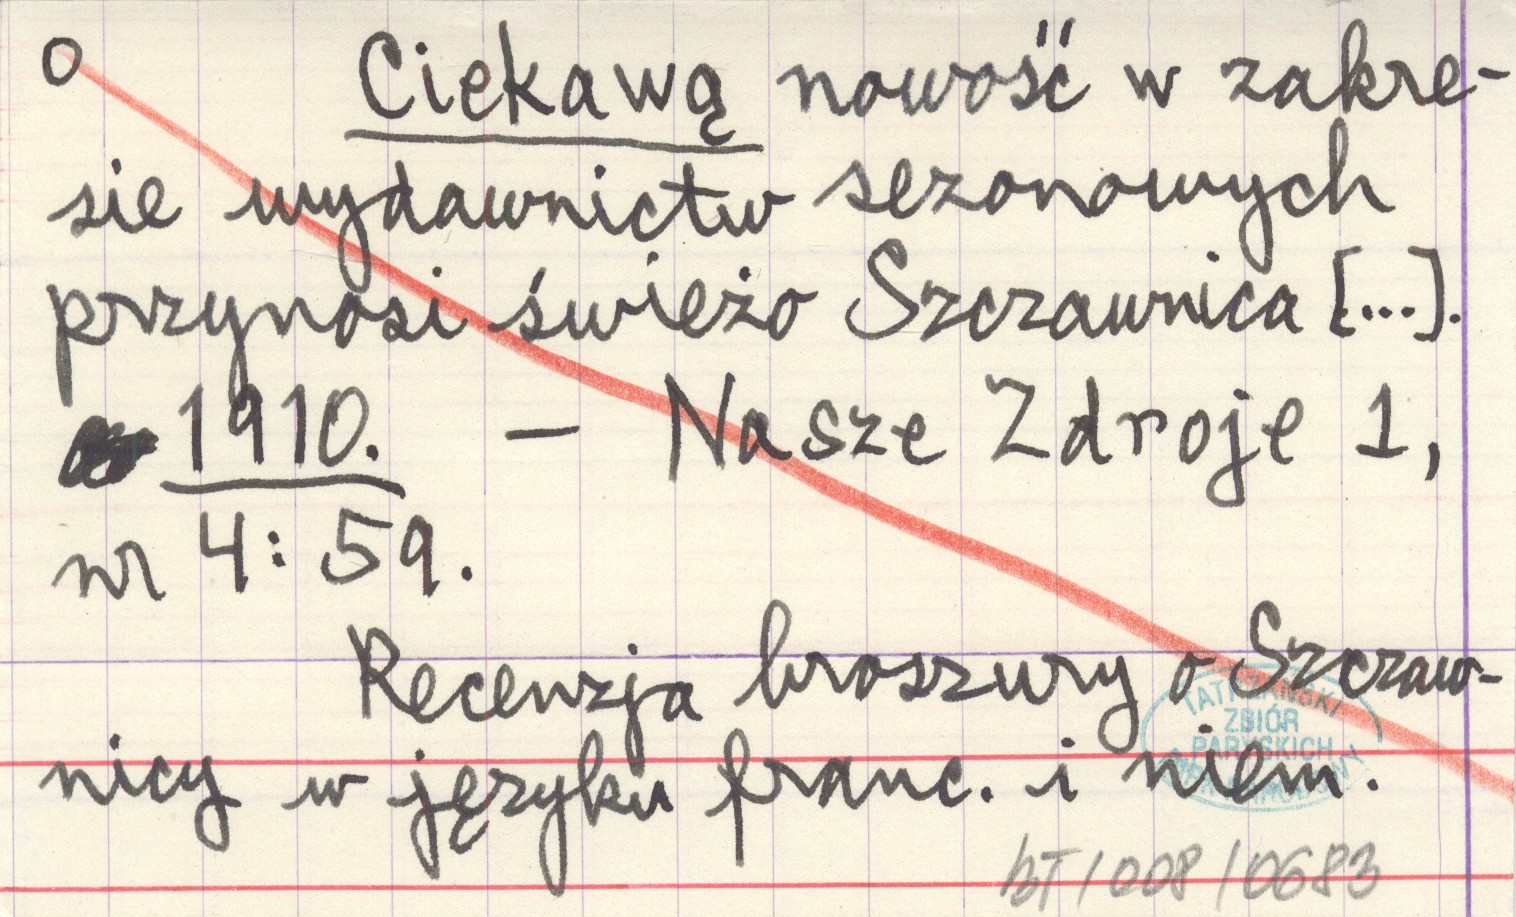 o Ciekawą nowość w zakre-
sie wydawnictw sezonowych
przynosi świeżo Szczawnica [...].
1910. — Nasze Zdroje 1,
nr 4: 59.
Recenzja broszury o Szczaw-
nicy w języku franc. i niem.
ZBIÓR
PARYSKICH
bT/008/0683